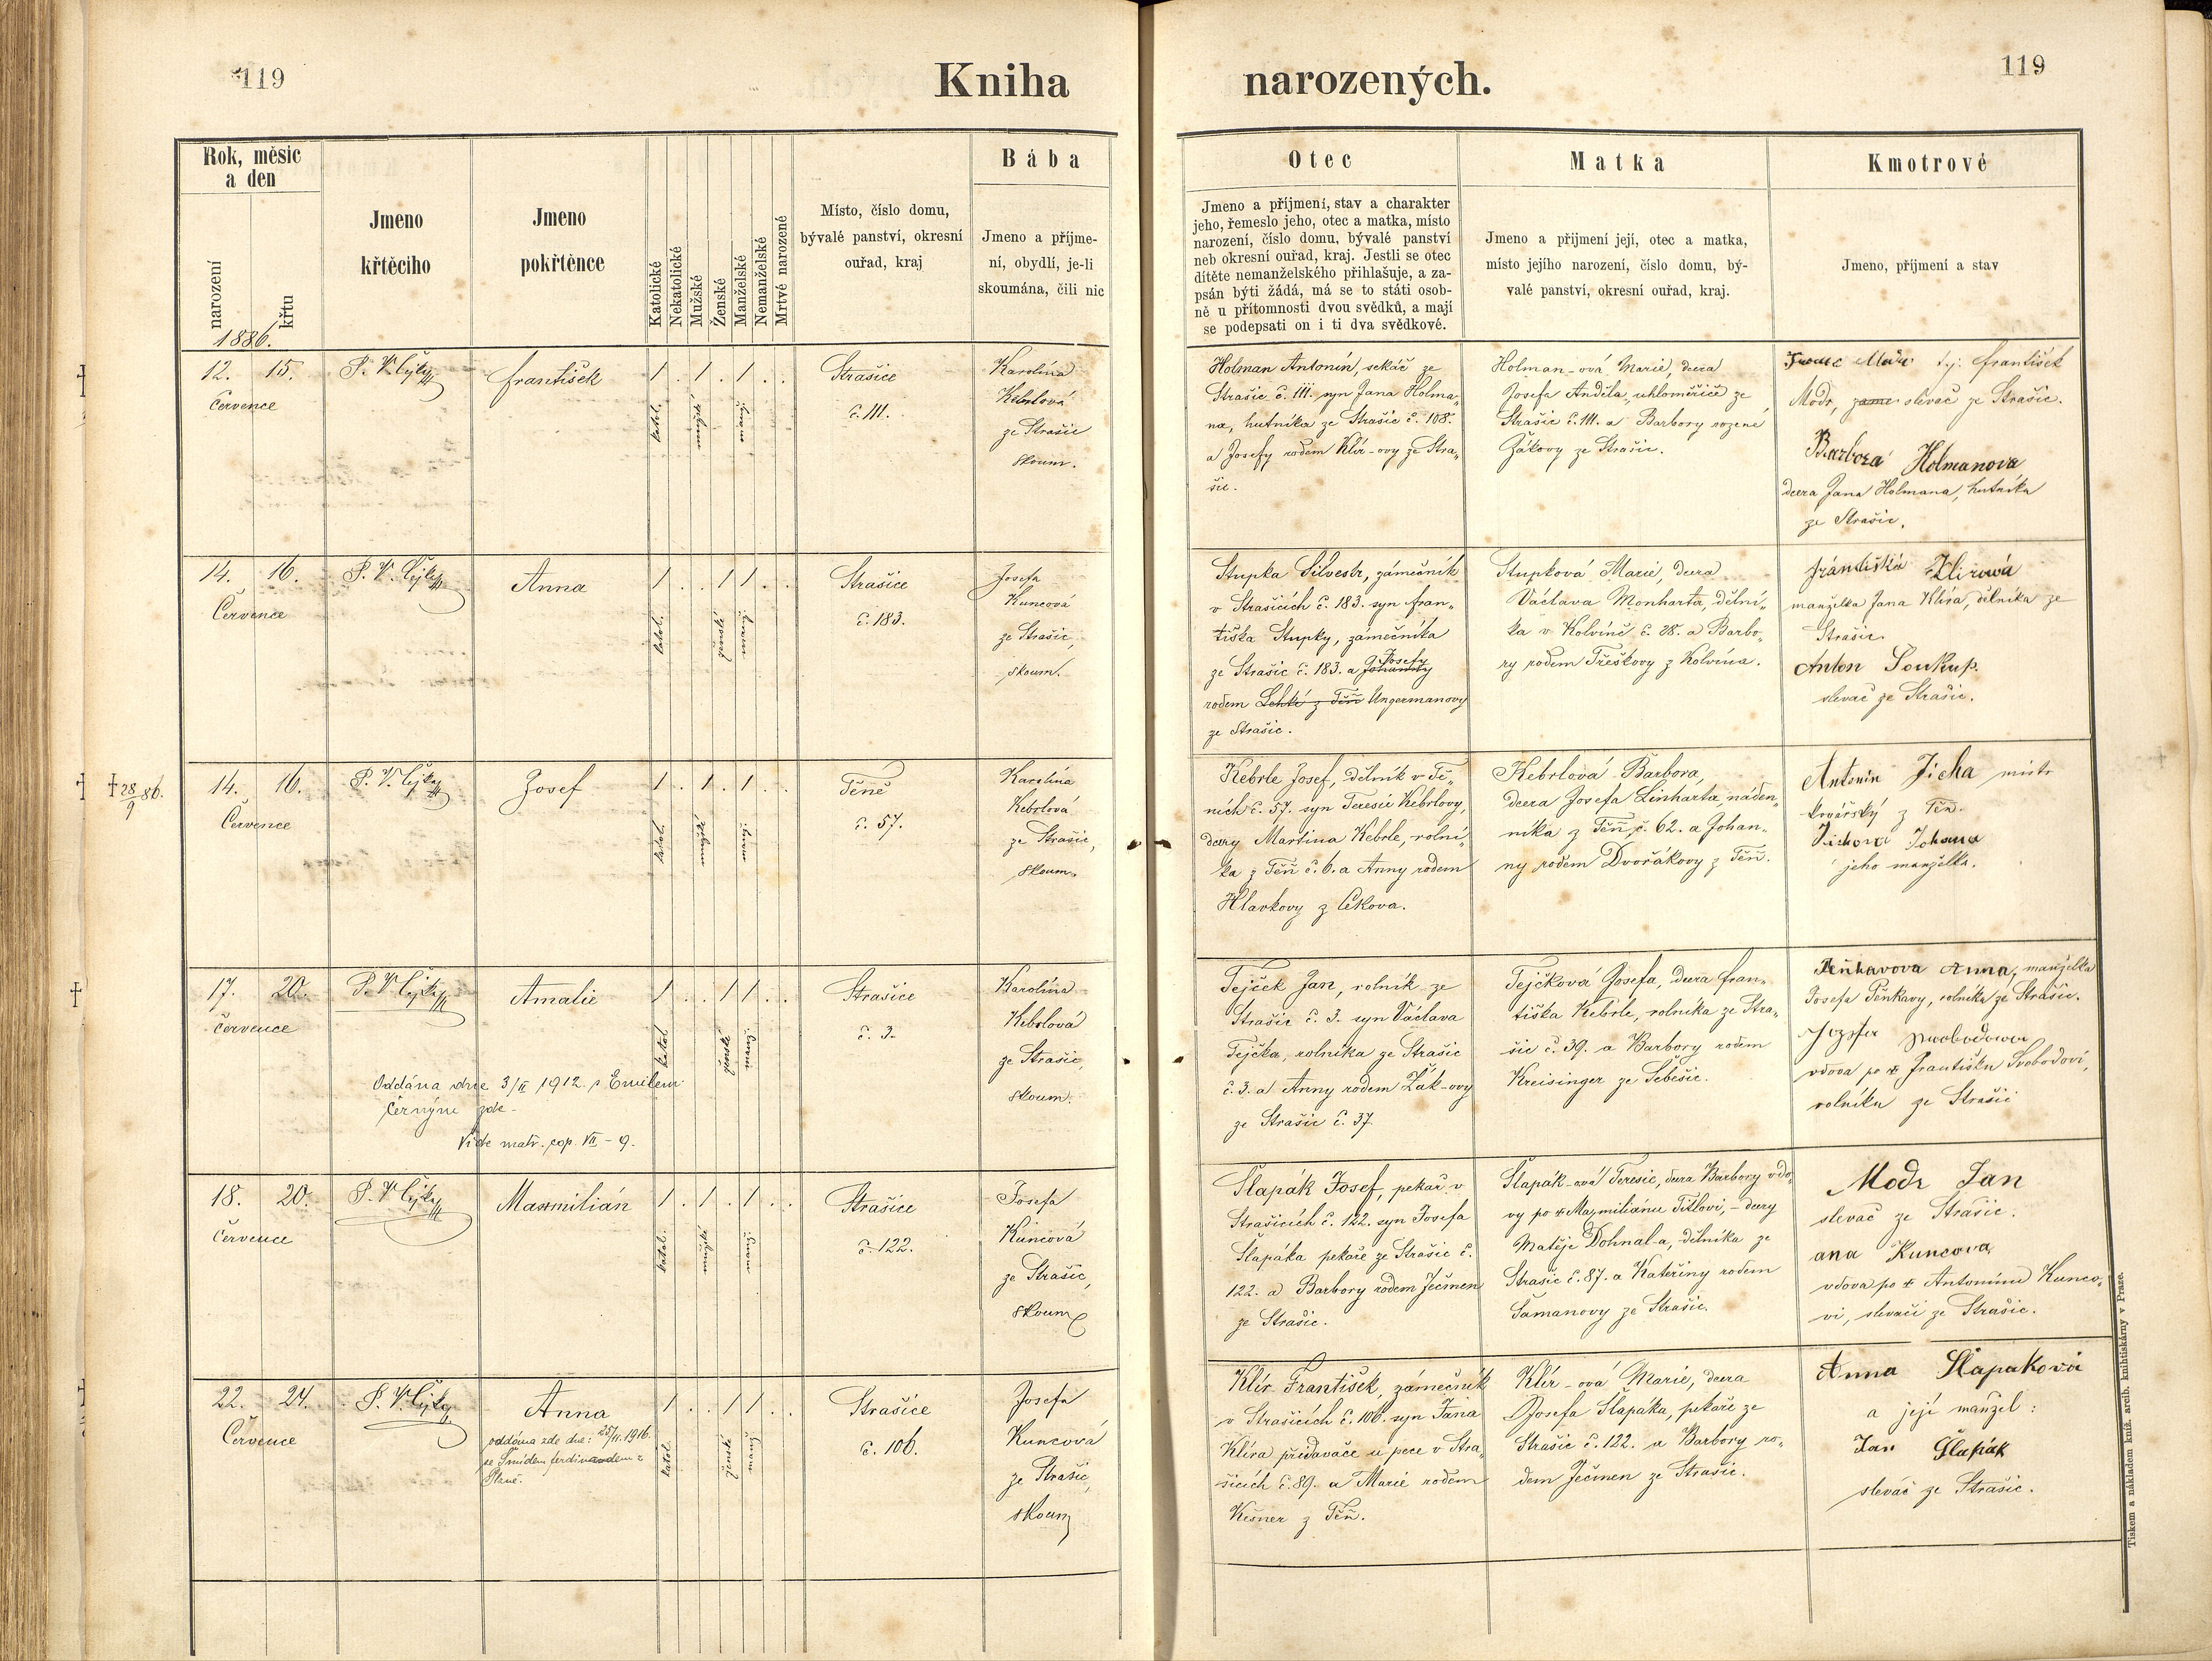 119
Kniha
narozených.
119
Rok, měsíc
a den
narození
křtu
1886.
Jmeno
křtěcího
Jmeno
pokřtěnce
Katolické
Nekatolické
Mužské
Ženské
Manželské
Nemanželské
Mrtvě narozené
Místo, číslo domu,
bývalé panství, okresní
ouřad, kraj
Bába
Jmeno a příjme-
ní, obydlí, je-li
skoumána, čili nic
Otec
Jmeno a příjmení, stav a charakter
jeho, řemeslo jeho, otec a matka, místo
narození, číslo domu, bývalé panství
neb okresní ouřad, kraj. Jestli se otec
dítěte nemanželského přihlašuje, a za-
psán býti žádá, má se to státi osob-
ně u přítomnosti dvou svědků, a mají
se podepsati on i ti dva svědkové.
Matka
Jmeno a příjmení její, otec a matka,
místo jejího narození, číslo domu, bý-
valé panství, okresní ouřad, kraj.
Kmotrové
Jmeno, příjmení a stav
12. 15.
Července
František
1 . 1 . 1 . .
katol.
mužské
manž.
Strašice
č. 111.
Karolína
Kebrlová
ze Strašic
skoum.
Holman Antonín, sekáč ze
Strašic č. 111. syn Jana Holma-
na, hutníka ze Strašic č. 108.
a Josefy rodem Klír-ovy ze Stra-
šic.
Holman-ová Marie, dcera
Josefa Anděla, uhloměřiče ze
Strašic č. 111. a Barbory rozené
Žákovy ze Strašic.
František
Modr, slevač ze Strašic.
Barbora Holmanova
dcera Jana Holmana, hutníka
ze Strašic.
14. 16.
Července
Anna
1 . . 1 1 . .
katol.
ženské
manž.
Strašice
č. 183.
Josefa
Kuncová
ze Strašic,
skoum.
Stupka Silvestr, zámečník
v Strašicích č. 183. syn Fran-
tiška Stupky, zámečníka
Josefy
ze Strašic č. 183. a Johanny
rodem Lehké z Těň Ungermanovy
ze Strašic.
Stupková Marie, dcera
Václava Monharta, dělní-
ka v Kolvíně č. 28. a Barbo-
ry rodem Třeškovy z Kolvína.
Františka Klirowá
manželka Jana Klíra, dělníka ze
Strašic.
Anton Soukup.
slevač ze Strašic.
† 28/9 86.
14. 16.
Července
Josef
1 . 1 . 1 . .
katol.
mužské
manž.
Těně
č. 57.
Karolína
Kebrlová
ze Strašic,
skoum.
Kebrle Josef, dělník v Tě-
ních č. 57. syn Teresie Kebrlovy,
dcery Martina Kebrle, rolní-
ka z Těň č. 6. a Anny rodem
Hlavkovy z Cekova.
Kebrlová Barbora,
dcera Josefa Linharta, náden-
níka z Těň č. 62. a Johan-
ny rodem Dvořákovy z Těň.
Antonin Jicha mistr
kovářský z Těň.
Jichova Johana
jeho manželka.
17. 20.
Července
Amalie
1 . . 1 1 . .
katol.
ženské
manž.
Strašice
č. 3.
Karolína
Kebrlová
ze Strašic,
skoum.
Oddána dne 3/II 1912 s Emilem
Černým zde.
Vide matr. cop. VII - 9.
Tejček Jan, rolník ze
Strašic č. 3. syn Václava
Tejčka, rolníka ze Strašic
č. 3. a Anny rodem Žák-ovy
ze Strašic č. 37.
Tejčková Josefa, dcera Fran-
tiška Kebrle, rolníka ze Stra-
šic č. 39. a Barbory rodem
Kreisinger ze Sebešic.
Anna, manželka
Josefa Pěnkavy, rolníka ze Strašic.
Jozefa Swobodowa
vdova po † Františku Svobodovi,
rolníku ze Strašic
18. 20.
Července
Maxmilián
1 . 1 . 1 . .
katol.
mužské
manž.
Strašice
č. 122.
Josefa
Kuncová
ze Strašic,
skoum
Šlapák Josef, pekař v
Strašicích č. 122. syn Josefa
Šlapáka pekaře ze Strašic č.
122. a Barbory rodem Ječmen
ze Strašic.
Šlapák-ová Teresie, dcera Barbory vdo-
vy po † Maxmiliánu Titlovi, - dcery
Matěje Dohnal-a, dělníka ze
Strašic č. 87. a Kateřiny rodem
Šamanovy ze Strašic.
Modr Jan
slevač ze Strašic.
ana Kuncova
vdova po † Antonínu Kunco-
vi, slevači ze Strašic.
22. 24.
Července
Anna
oddána zde dne: 25/11. 1916.
se Šmídem Ferdinandem z
Plzně.
1 . . 1 1 . .
katol.
ženské
manž
Strašice
č. 106.
Josefa
Kuncová
ze Strašic,
skoum
Klír František, zámečník
v Strašicích č. 106. syn Jana
Klíra přidavače u pece v Stra-
šicích č. 89. a Marie rodem
Kešner z Těň.
Klír-ová Marie, dcera
Josefa Šlapáka, pekaře ze
Strašic č. 122. a Barbory ro-
dem Ječmen ze Strašic.
Anna Šlapaková
a její manžel:
Jan Šlapák
slevač ze Strašic.
Tiskem a nákladem kníž. arcib. knihtiskárny v Praze.